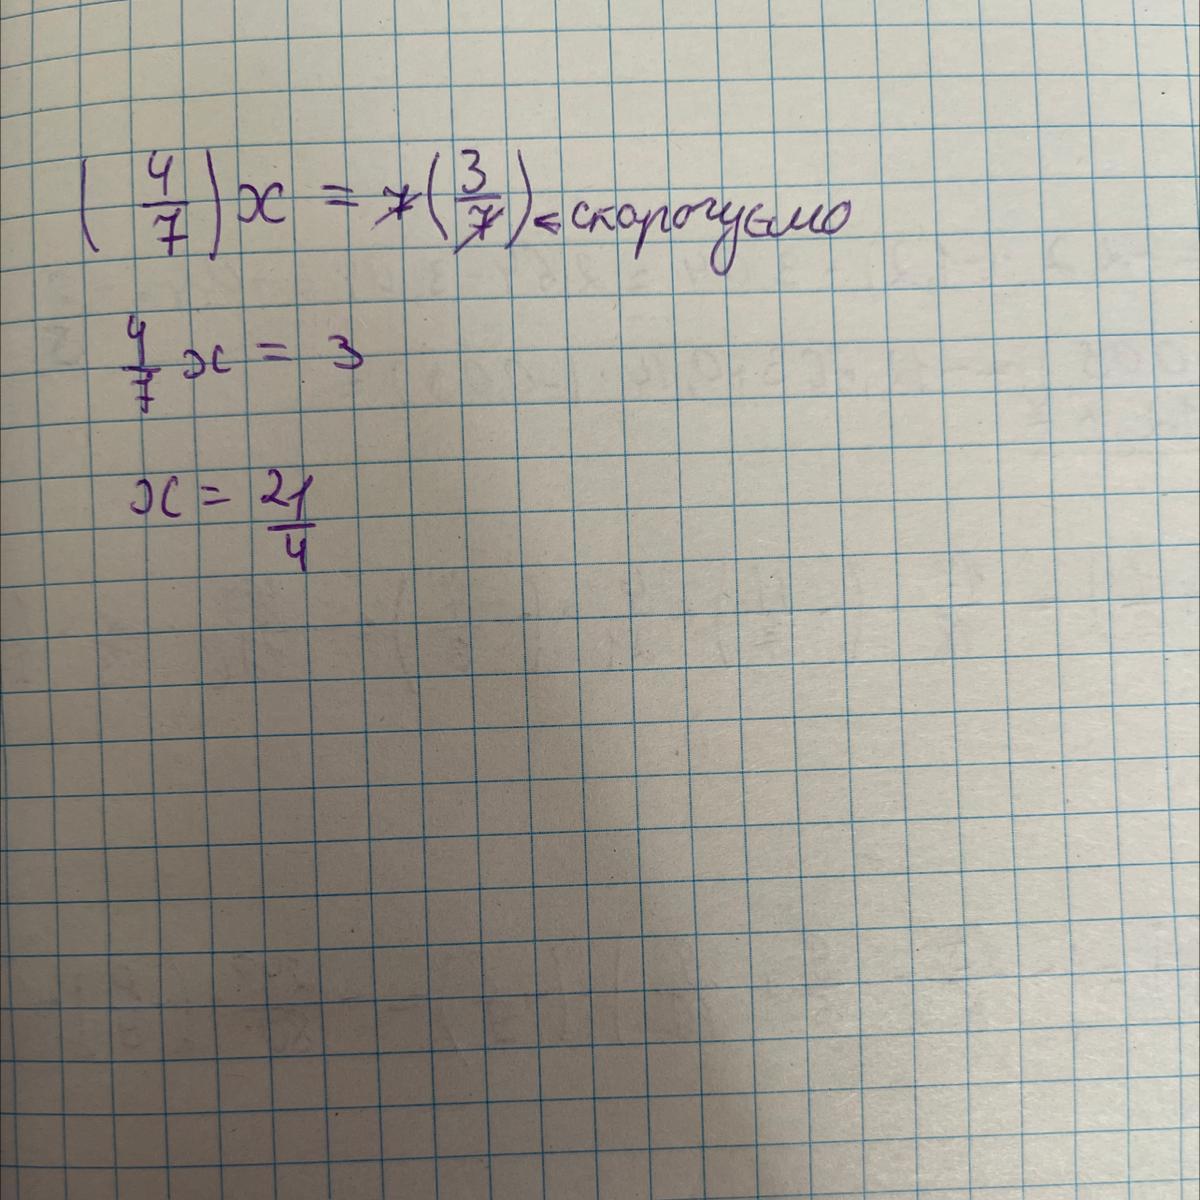 (4/7)x = 7(3/7) < скорочуємо
4/7 x = 3
x = 21/4